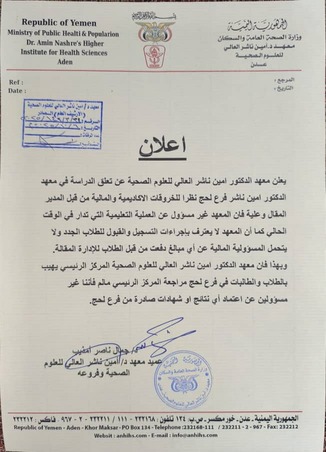 Republic of Yemen
Ministry of Public Healti & Popularion
Dr. Amin Nashre's Higher
Institute for Health Sciences
Aden
الجمهورية اليمنية
وزارة الصحة العامة والسكان
معهد د. امين ناشر العالي
للعلوم الصحية
عدن
Ref :
Date :
المرجع :
التاريخ :
معهد د/ امين ناشر العالي للعلوم الصحية
اعلان
يعلن معهد الدكتور امين ناشر العالي للعلوم الصحية عن تعلق الدراسة في معهد
الدكتور امين ناشر فرع لحج نظرا للخروقات الاكاديمية والمالية من قبل المدير
المقال وعلية فان المعهد غير مسؤول عن العملية التعليمية التي تدار في الوقت
الحالي كما أن المعهد لا يعترف بإجراءات التسجيل والقبول للطلاب الجدد ولا
يتحمل المسؤولية المالية عن أي مبالغ دفعت من قبل الطلاب للإدارة المقالة.
وبهذا فان معهد الدكتور امين ناشر العالي للعلوم الصحية المركز الرئيسي يهيب
بالطلاب والطالبات في فرع لحج مراجعة المركز الرئيسي مالم فأننا غير
مسؤولين عن اعتماد أي نتائج او شهادات صادرة من فرع لحج.
د/ جمال ناصر امذيب
عميد معهد د/ امين ناشر العالي للعلوم
الصحية وفروعه
الجمهورية اليمنية. عدن - خورمكسر. ص.ب: ١٣٤ تلفون: ٢٣٢١٦٨ / ١١١ - ٢٣٢٢١١ / ٢ - ٩٦٧ - فاكس: ٢٣٣٢١٢
Republic of Yemen - Aden - Khor Maksar - PO Box 134 - Telephone:232168-111 / 232211 - 2 - 967 - Fax: 232212
Website : anhihs.com - E-mail : info@anhihs.com